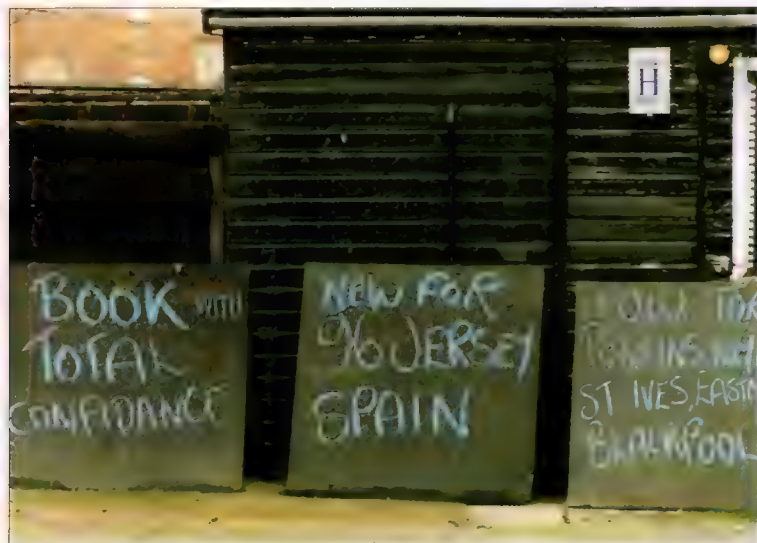 H
BOOK WITH
TOTAL
CONFIDANCE
NEW FOR
90 JERSEY
SPAIN
ST IVES, EAST
BLACKPOOL